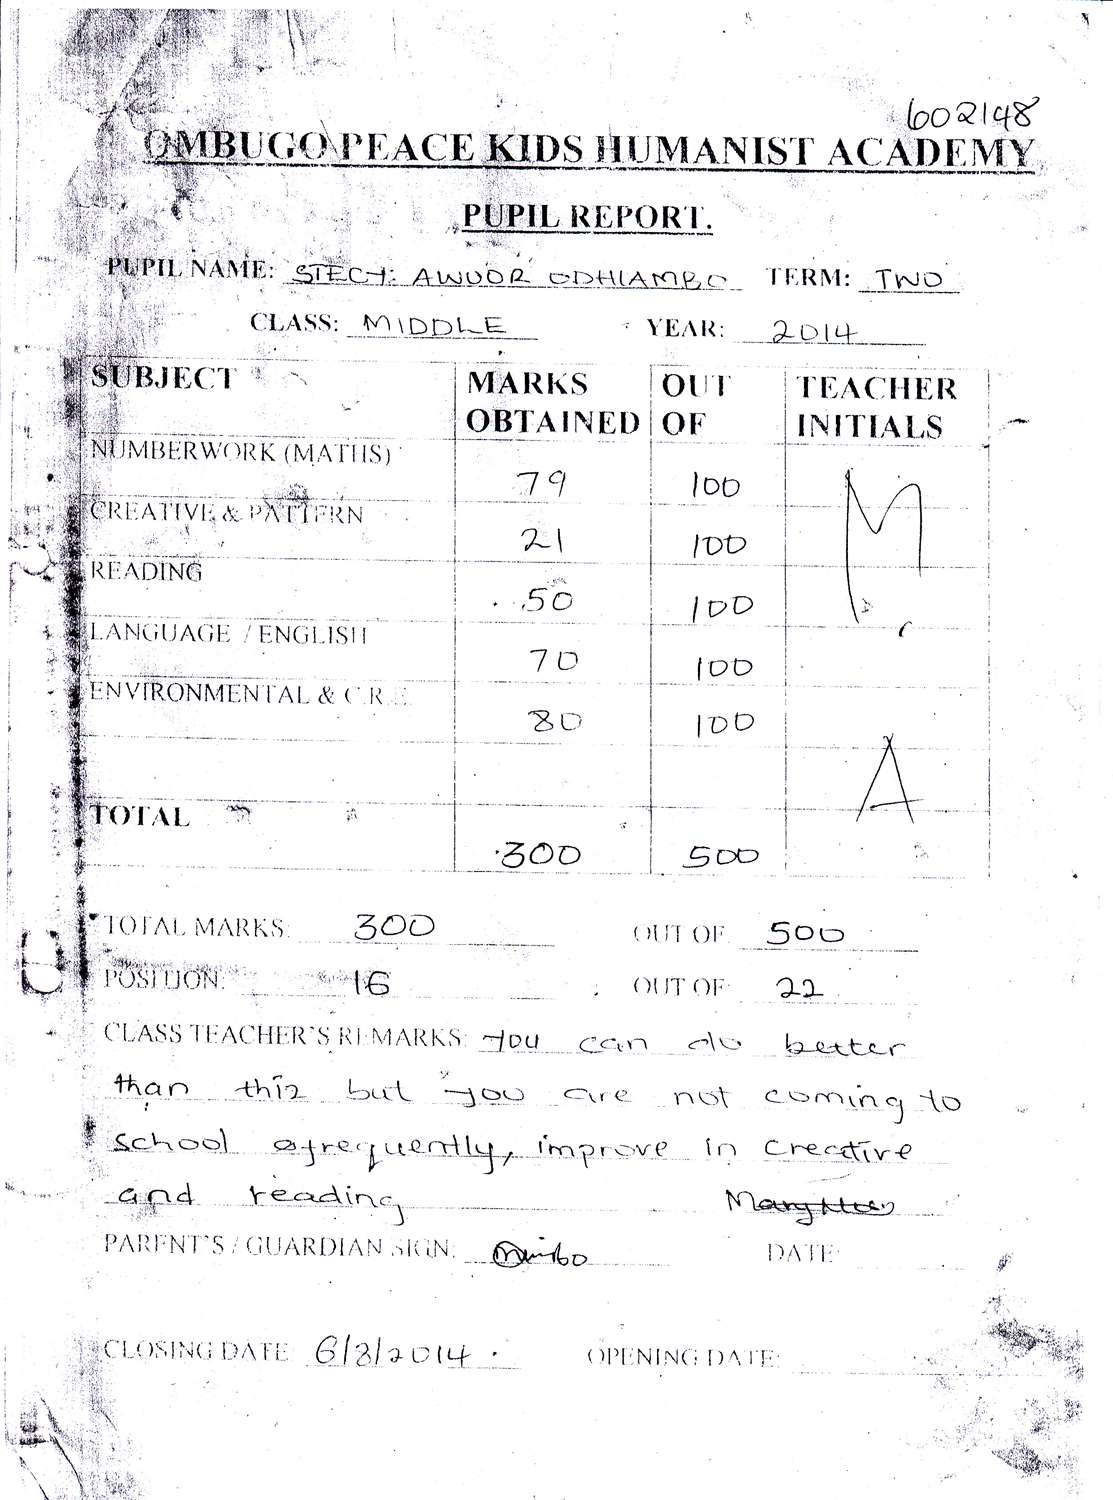 602148
OMBUGO PEACE KIDS HUMANIST ACADEMY
PUPIL REPORT.
PUPIL NAME: STECY AWUOR ODHIAMBO TERM: TWO
CLASS: MIDDLE YEAR: 2014
SUBJECT MARKS OBTAINED OUT OF TEACHER INITIALS
NUMBERWORK (MATHS) 79 100
CREATIVE & PATTERN 21 100
READING 50 100
LANGUAGE / ENGLISH 70 100
ENVIRONMENTAL & C.R.E 80 100
M.A
TOTAL 300 500
TOTAL MARKS: 300 OUT OF 500
POSITION: 16 OUT OF 22
CLASS TEACHER'S REMARKS: you can do better
than this but you are not coming to
school frequently, improve in creative
and reading Mary
PARENT'S / GUARDIAN SIGN: DATE:
CLOSING DATE 6/8/2014 OPENING DATE: